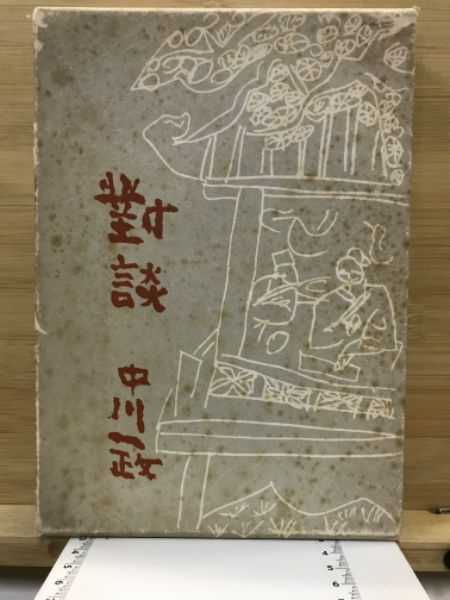 對談
中川一政